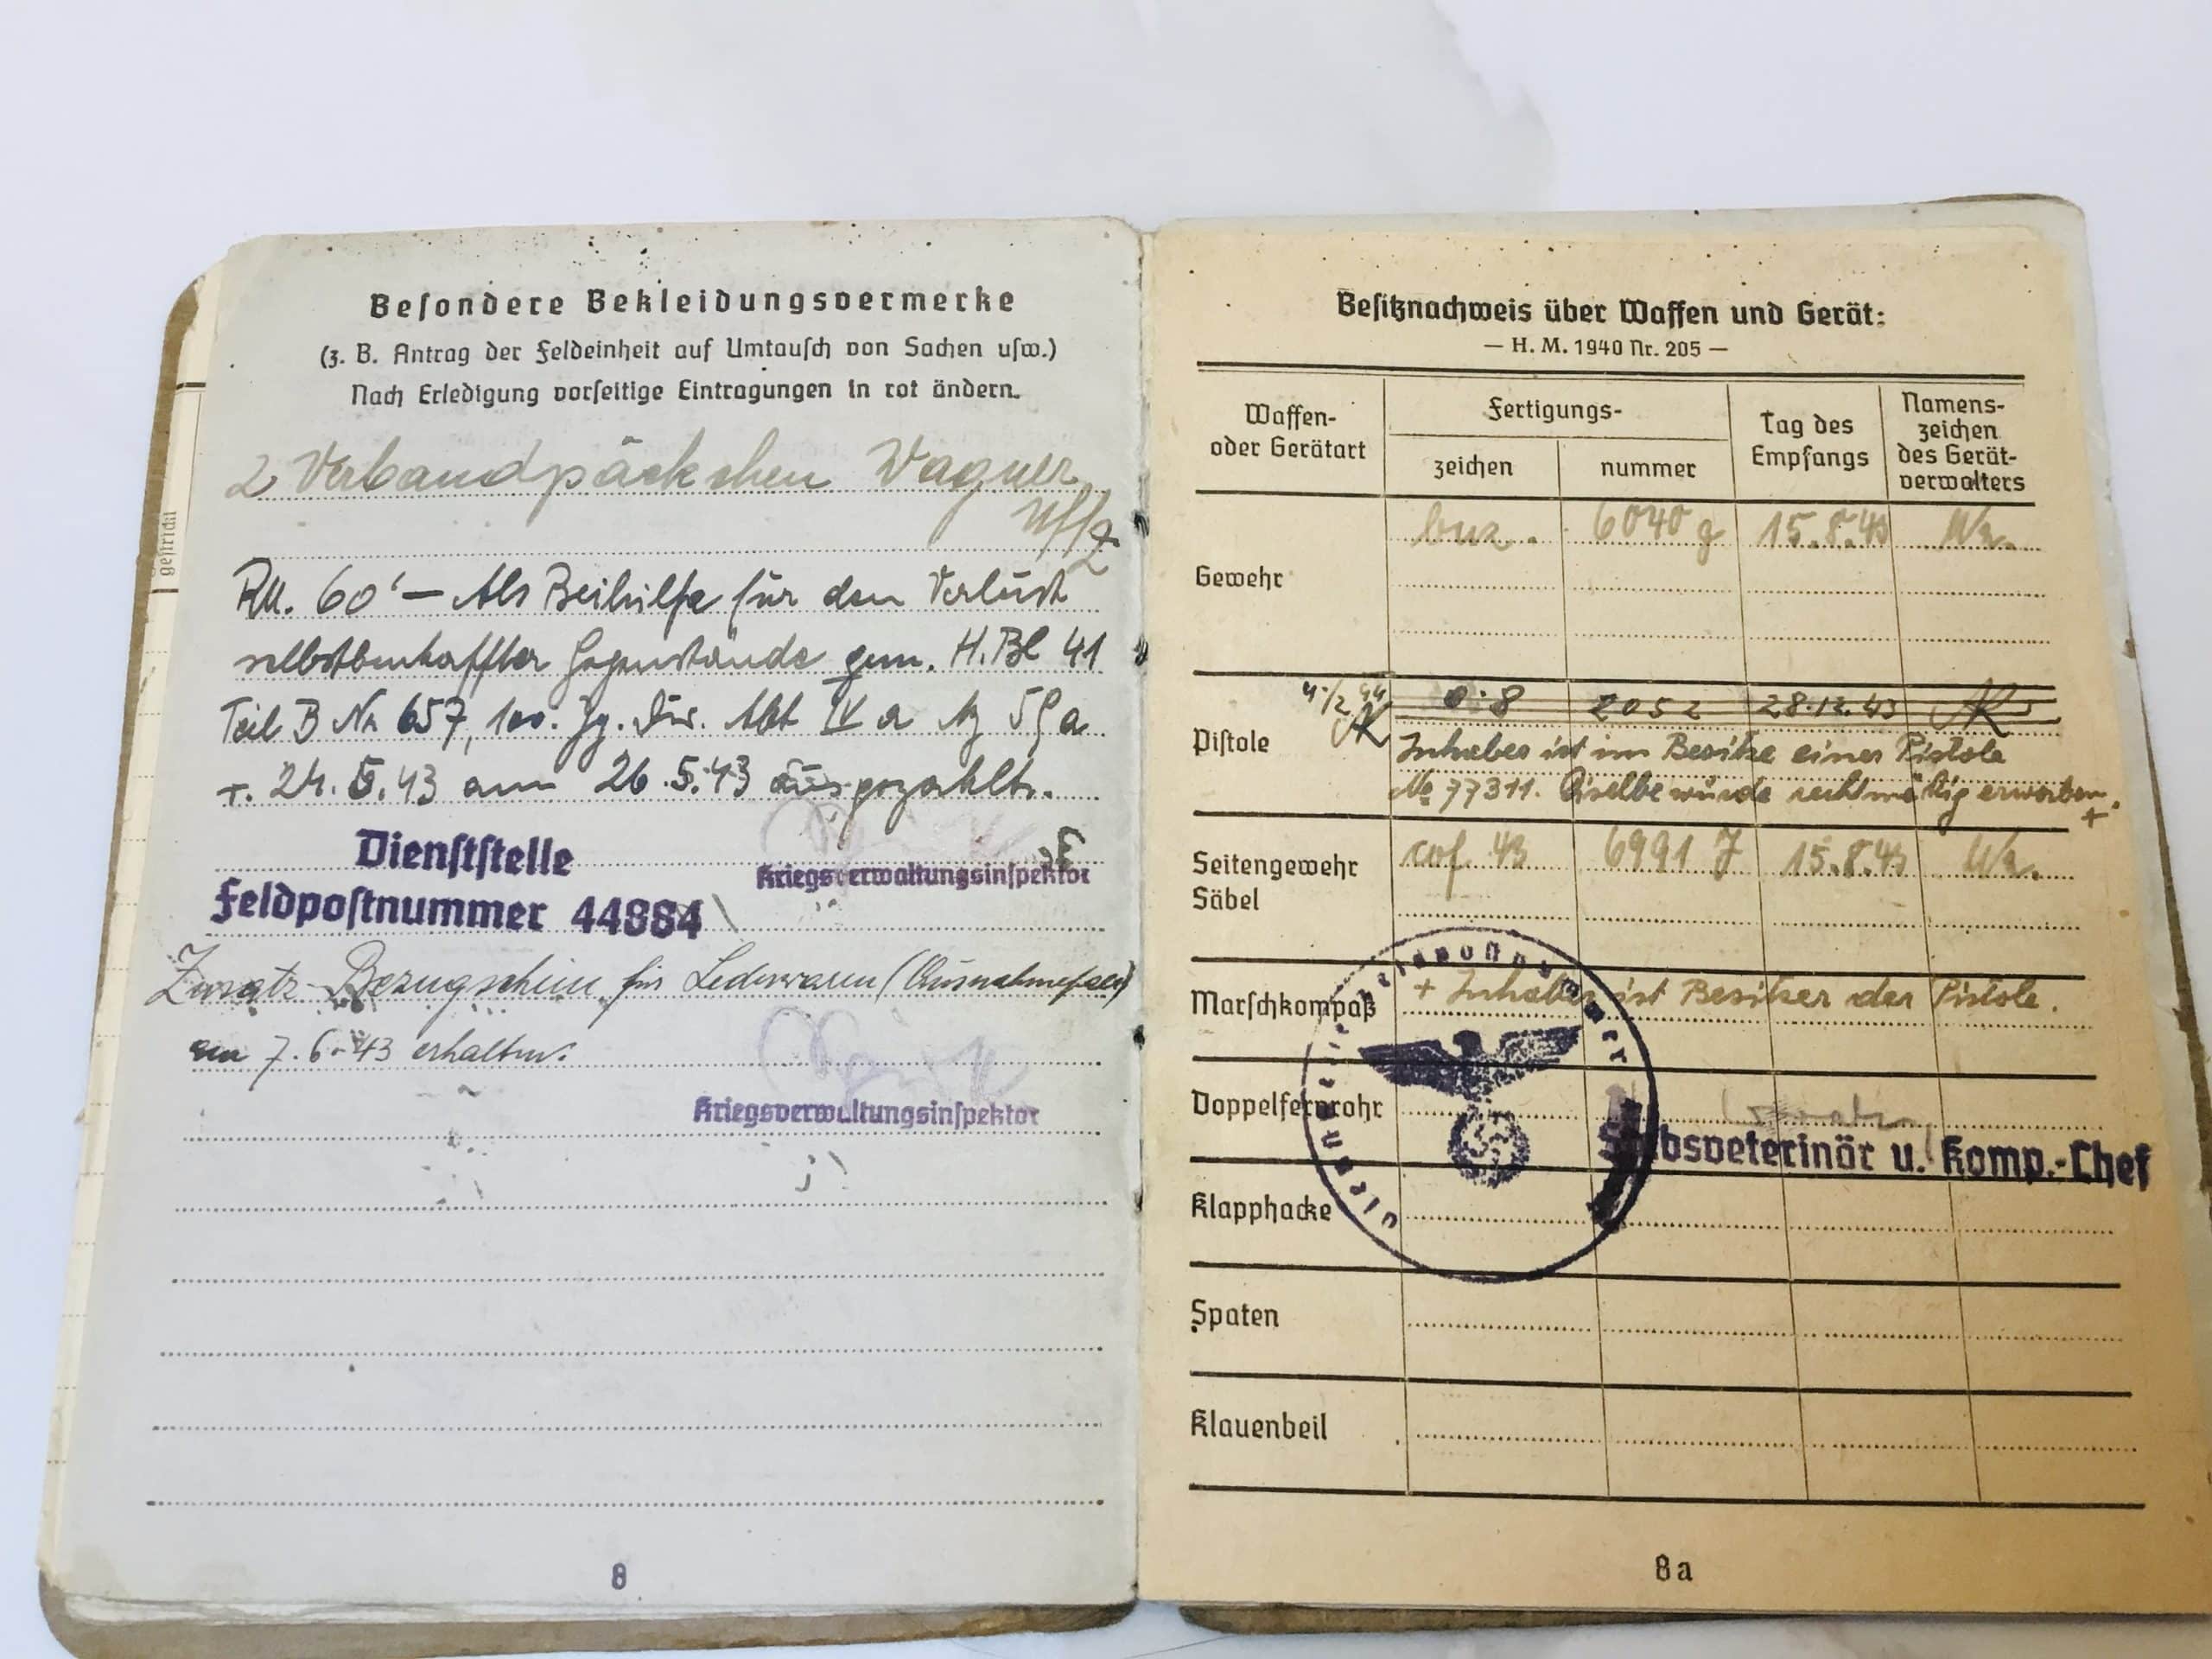 Besondere Bekleidungsvermerke
(z. B. Antrag der Feldeinheit auf Umtausch von Sachen usw.)
Nach Erledigung vorseitige Eintragungen in rot ändern.
2 Verbandpäckchen Wagner
Uffz
RM. 60'— Als Beihilfe für den Verlust
selbstbeschaffter Gegenstände gem. H.Bl 41
Teil B Nr 657, 100. Jg. Div. Abt IV a Az 59 a
v. 24.5.43 am 26.5.43 ausgezahlt.
Dienststelle
Kriegsverwaltungsinspektor
Feldpostnummer 44884
Zusatz-Bezugschein für Lederwaren (Ausnahmefall)
am 7.6.43 erhalten.
Kriegsverwaltungsinspektor
8
gestrickt
Besitznachweis über Waffen und Gerät:
— H. M. 1940 Nr. 205 —
Waffen- oder Gerätart
Fertigungs-
zeichen
nummer
Tag des Empfangs
Namens-zeichen des Gerät-verwalters
Gewehr
6040 g 15.8.43
Pistole
4/2 44
0.8 2052 28.12.43
Inhaber ist im Besitze einer Pistole
No 77311. Dieselbe wurde rechtmäßig erworben. +
Seitengewehr
Säbel
cof 43 6991 J 15.8.43
Marschkompaß
+ Inhaber ist Besitzer der Pistole.
Doppelfernrohr
Stabsveterinär u. Komp.-Chef
Klapphacke
Spaten
Klauenbeil
8a